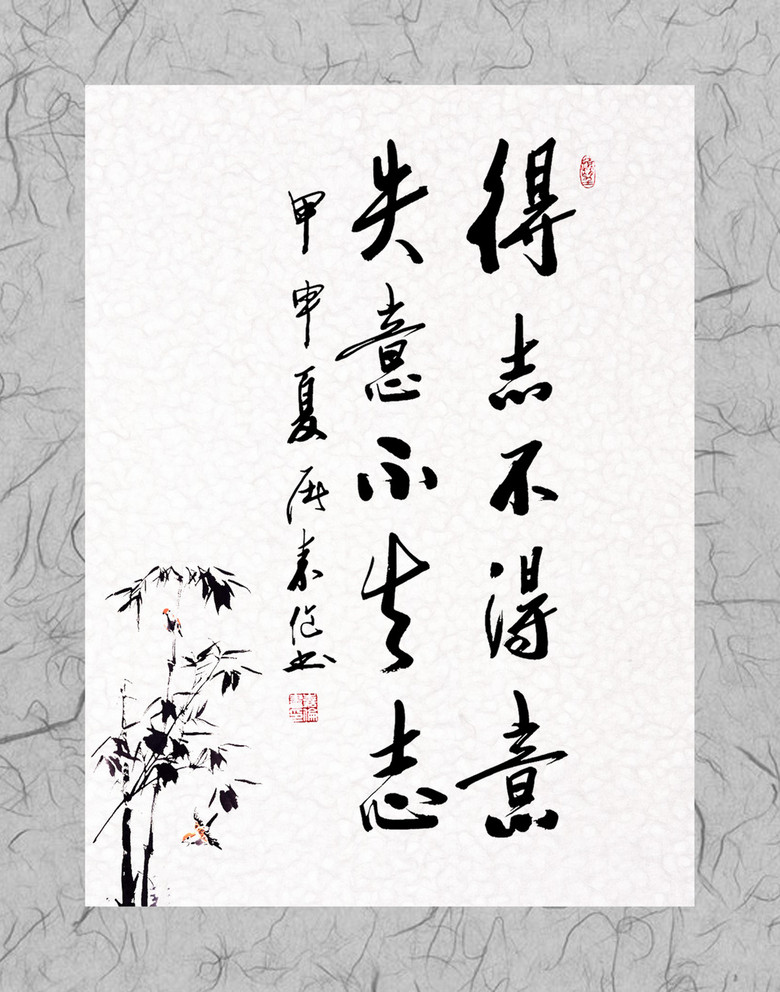 得志不得意
失意不失志
甲申夏 袁伦书